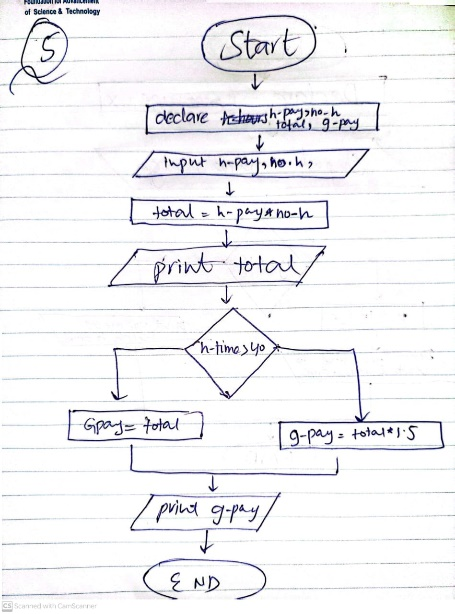 Foundation for Advancement
of Science & Technology
5
Start
declare h-pay, no-h
total, g-pay
Input h-pay, no.h,
total = h-pay * no-h
print total
h-time > 40
Gpay = total
g-pay = total * 1.5
print g-pay
END
CS Scanned with CamScanner